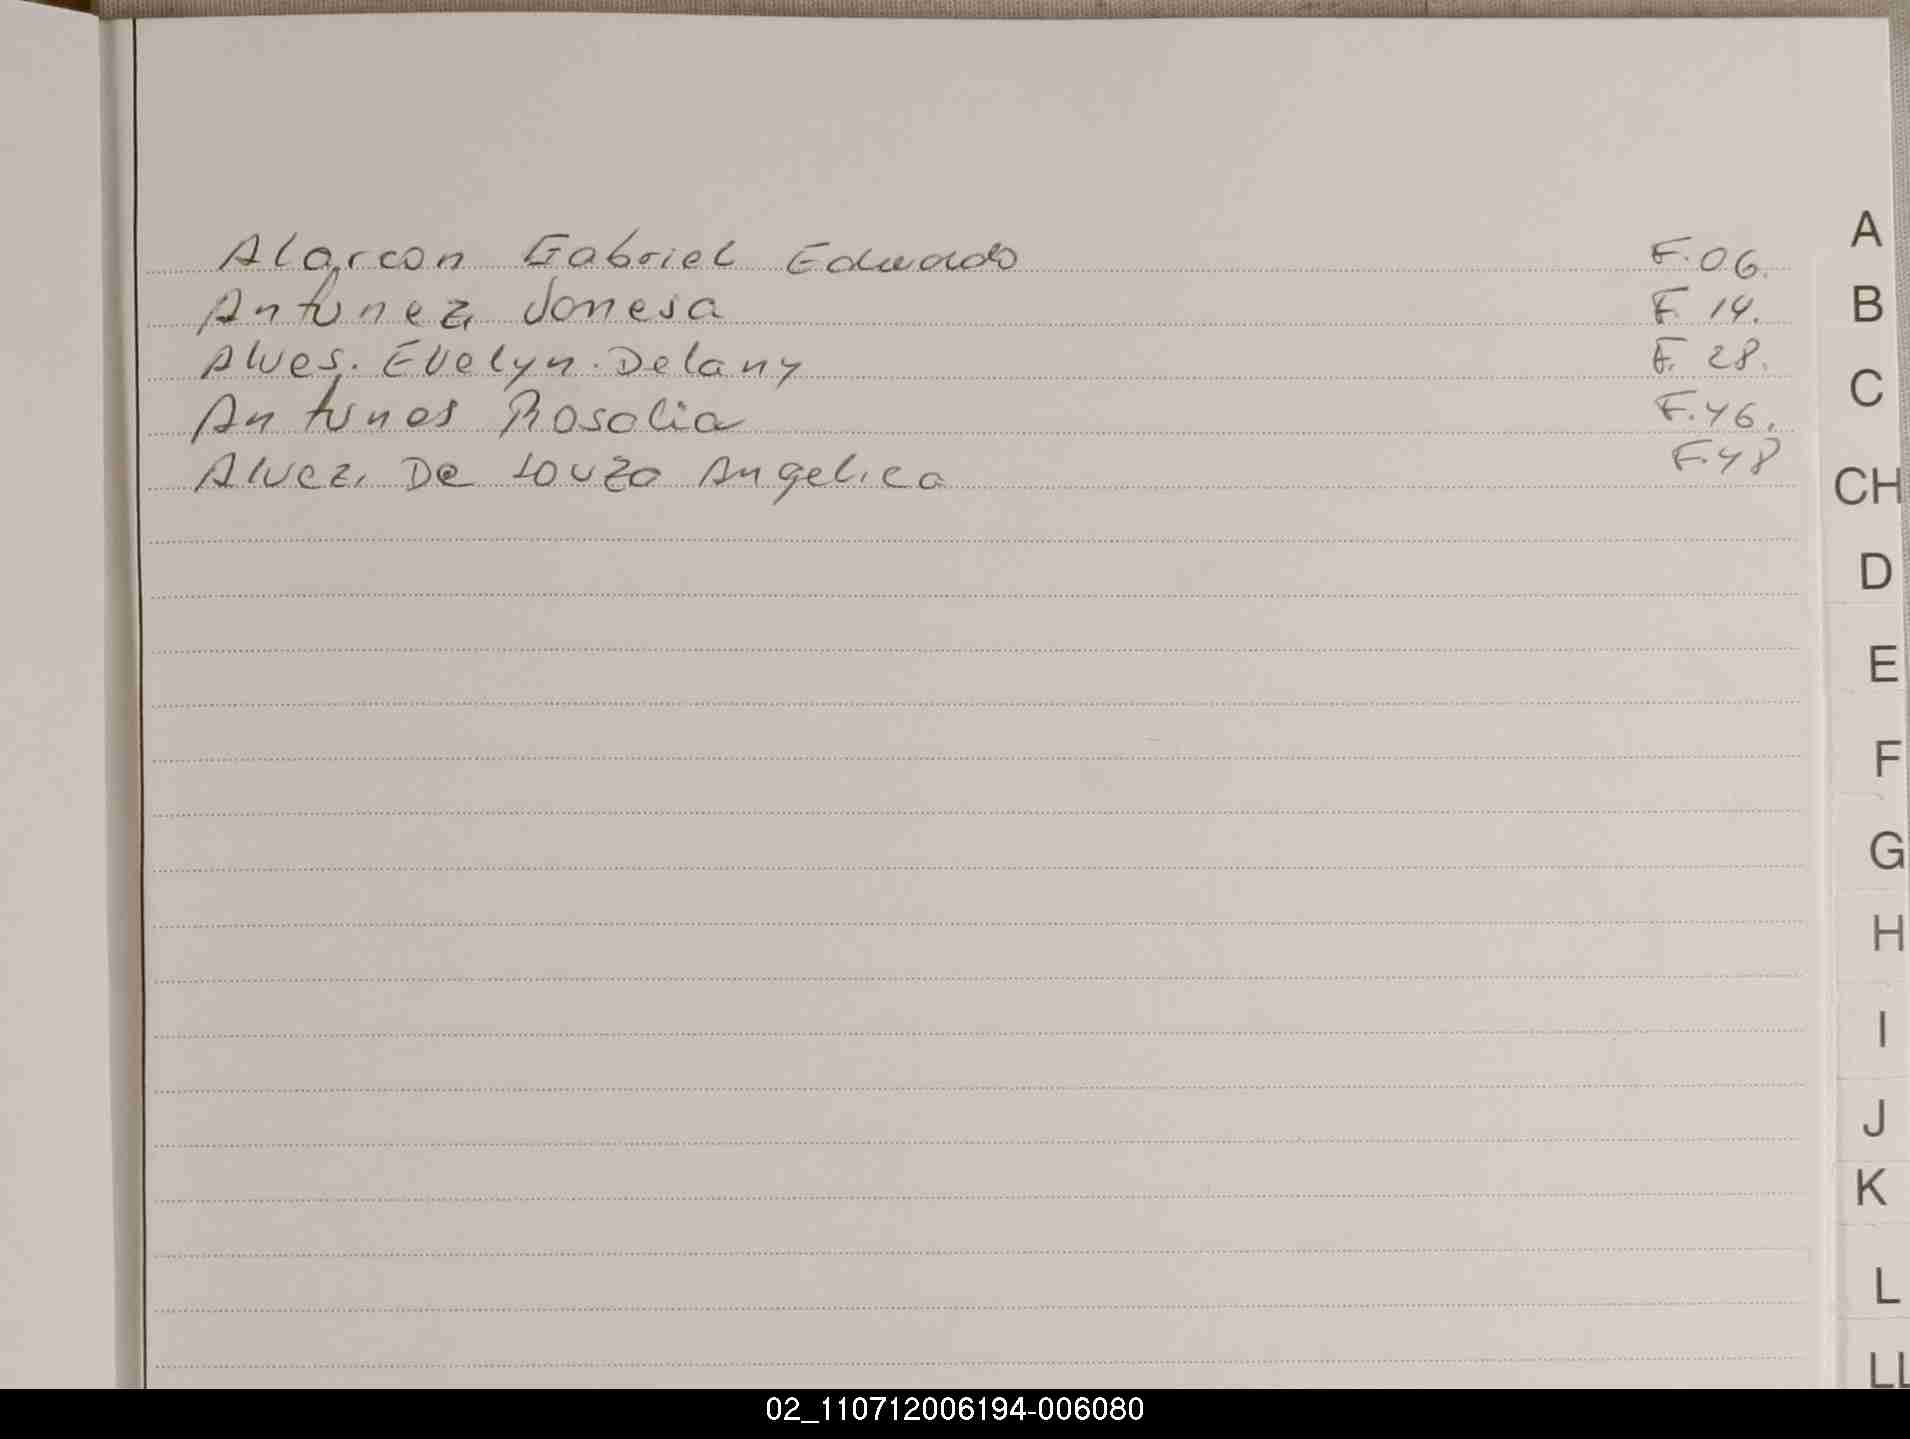 Alarcon Gabriel Eduardo F.06.
Antunez Vanesa F. 14.
Alves. Evelyn. Delany F. 28.
Antunes Rosalia F.46.
Alvez. De Souza Angelica F.48
A
B
C
CH
D
E
F
G
H
I
J
K
L
LL
02_110712006194-006080